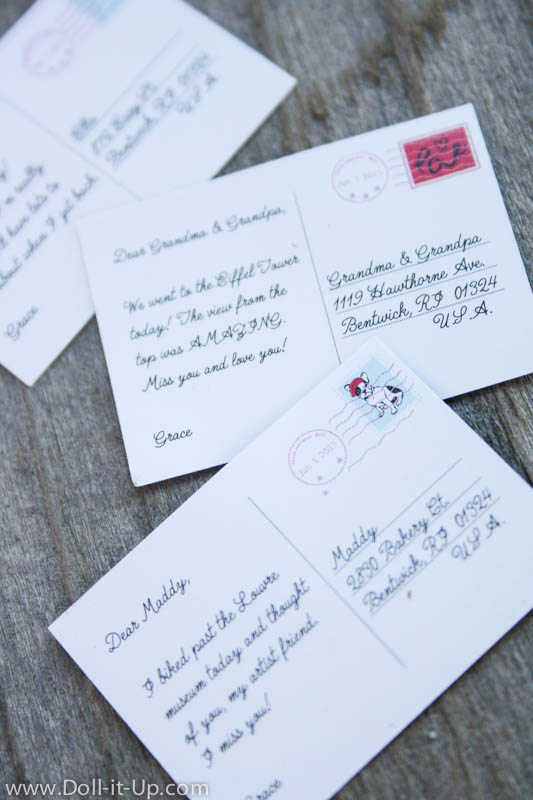 Ella
Bentwick, RI 01324
U.S.A.
really
when I get back
Grace
JUN 1 2015
Love
Dear Grandma & Grandpa,
We went to the Eiffel Tower
today! The view from the
top was AMAZING.
Miss you and love you!
Grace
Grandma & Grandpa
1119 Hawthorne Ave.
Bentwick, RI 01324
U.S.A.
Dear Maddy,
I biked past the Louvre
museum today and thought
of you, my artist friend.
I miss you!
Grace
Maddy
2030 Bakery Ct.
Bentwick, RI 01324
U.S.A.
www.Doll-it-Up.com